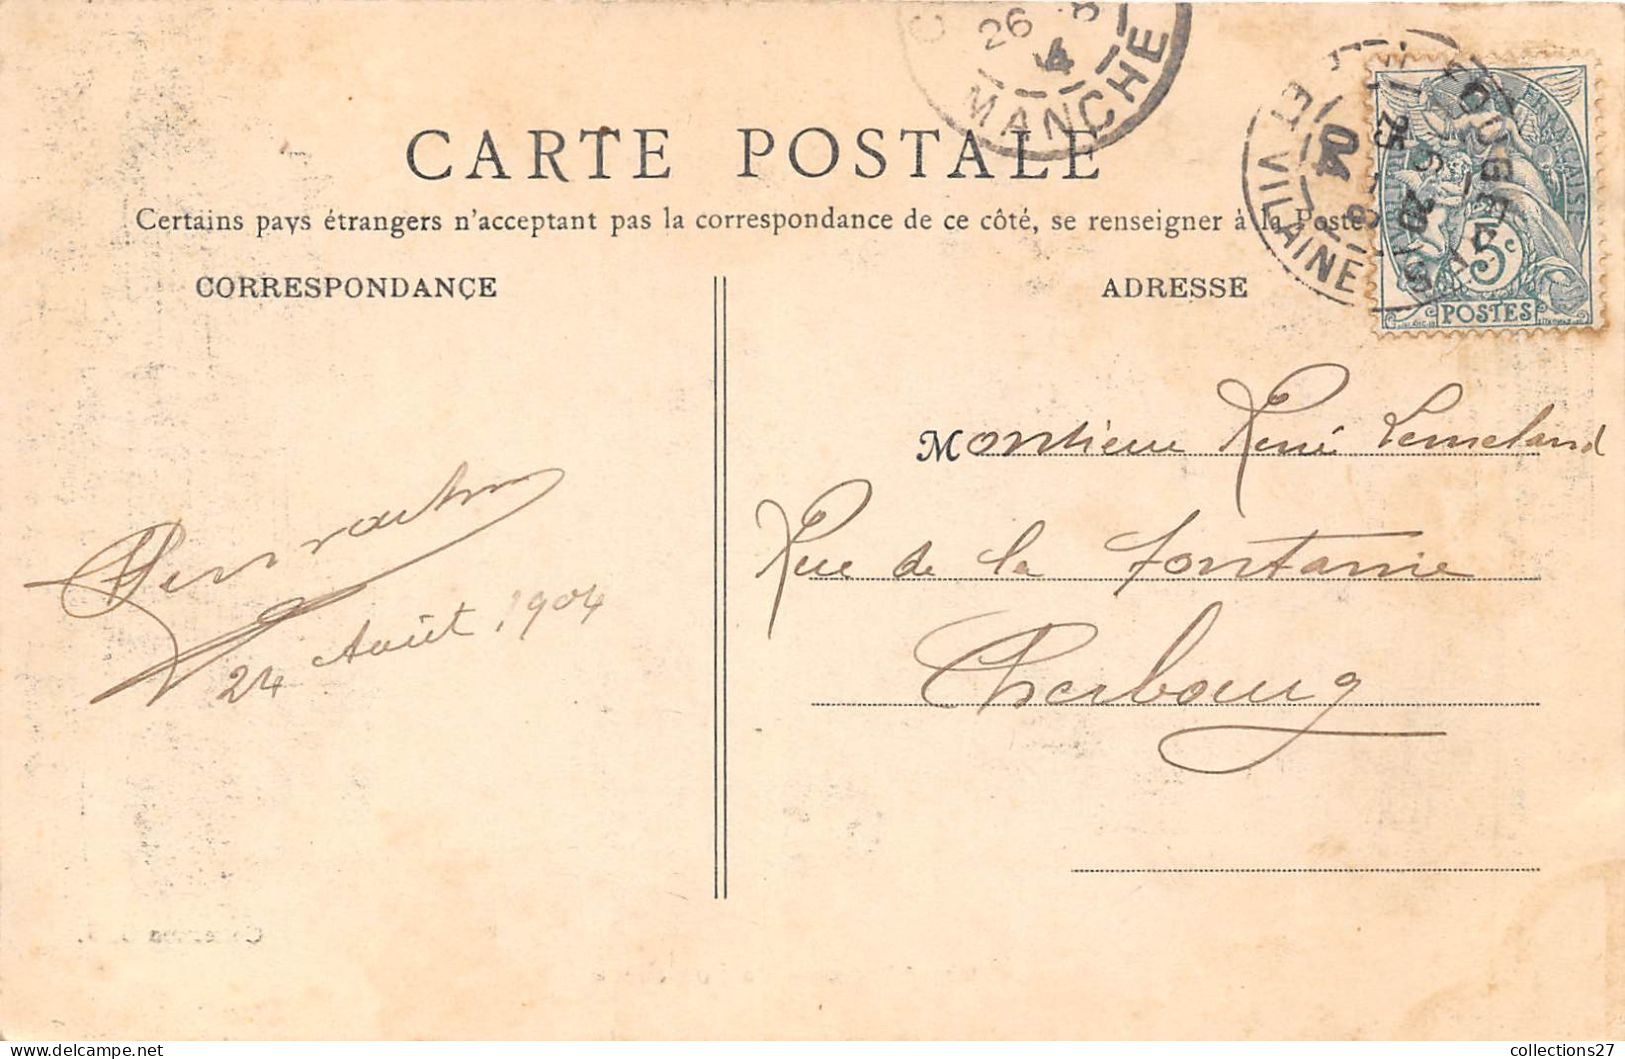 CARTE POSTALE
Certains pays étrangers n'acceptant pas la correspondance de ce côté, se renseigner à la Poste
CORRESPONDANCE
ADRESSE
26 8
MANCHE
ET VILAINE
04
25
FRANÇAISE
5c
POSTES
Monsieur René Lemeland
Rue de la Fontaine
Cherbourg
24 Août 1904
collections27